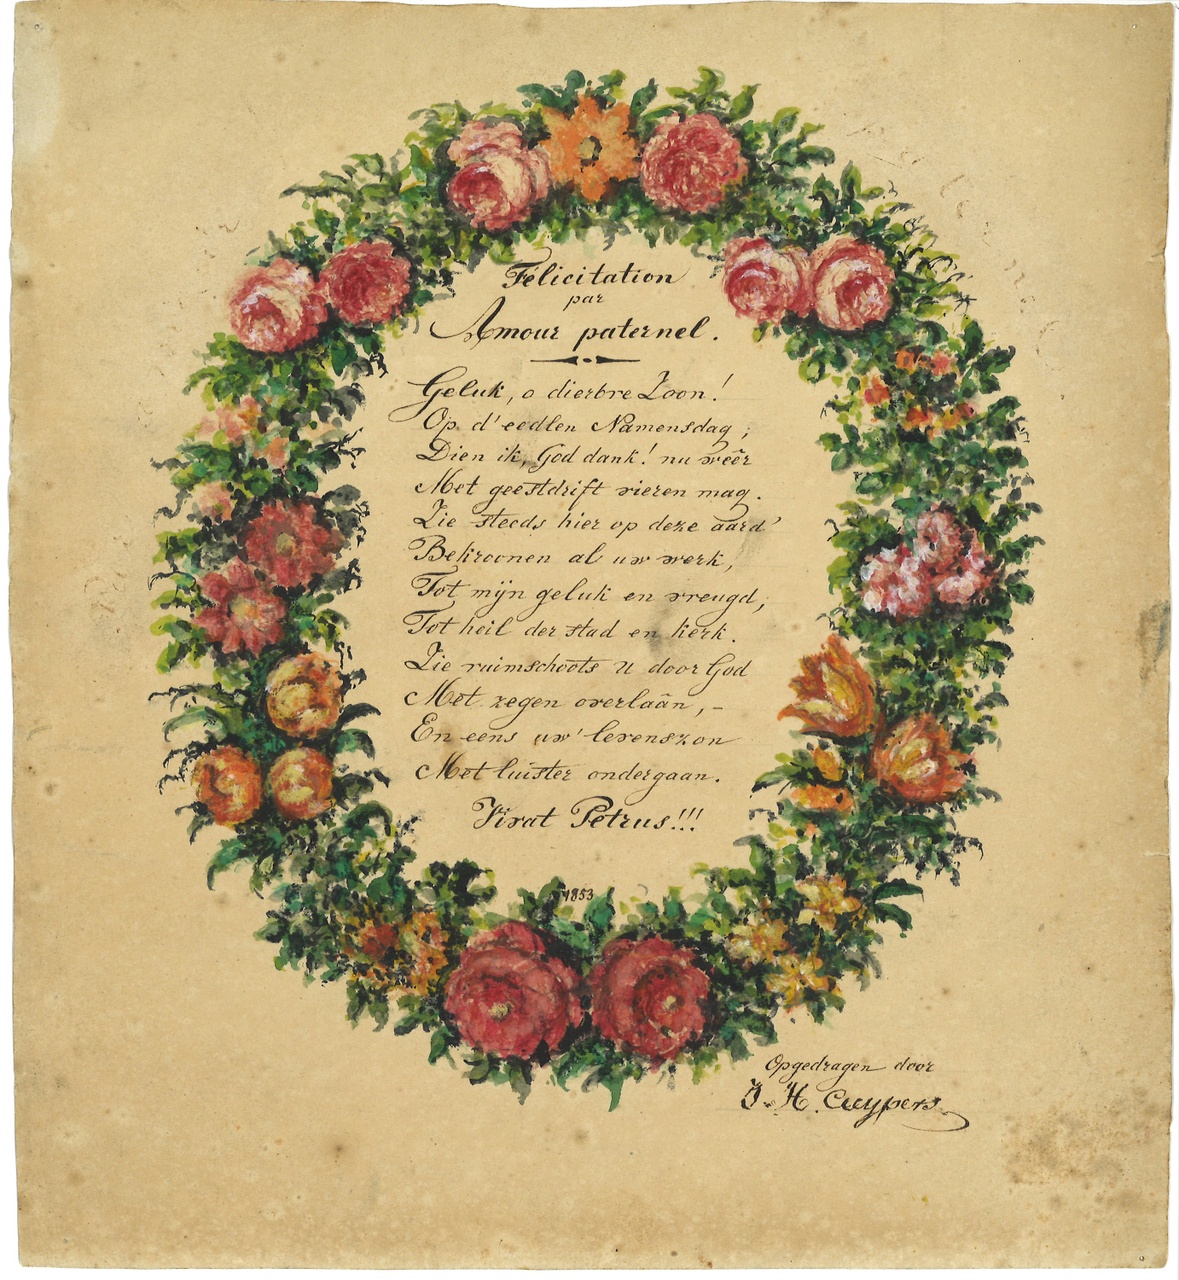 Félicitation
par
Amour paternel.
Geluk, o dierbre Zoon!
Op d'eedlen Namensdag;
Dien ik, God dank! nu weêr
Met geestdrift vieren mag.
Zie steeds hier op deze aard'
Bekroonen al uw werk,
Tot mijn geluk en vreugd,
Tot heil der stad en kerk.
Zie ruimschoots U door God
Met zegen overlaân, –
En eens uw' levenszon
Met luister ondergaan.
Vivat Petrus!!!
1853
Opgedragen door
J. H. Cuypers